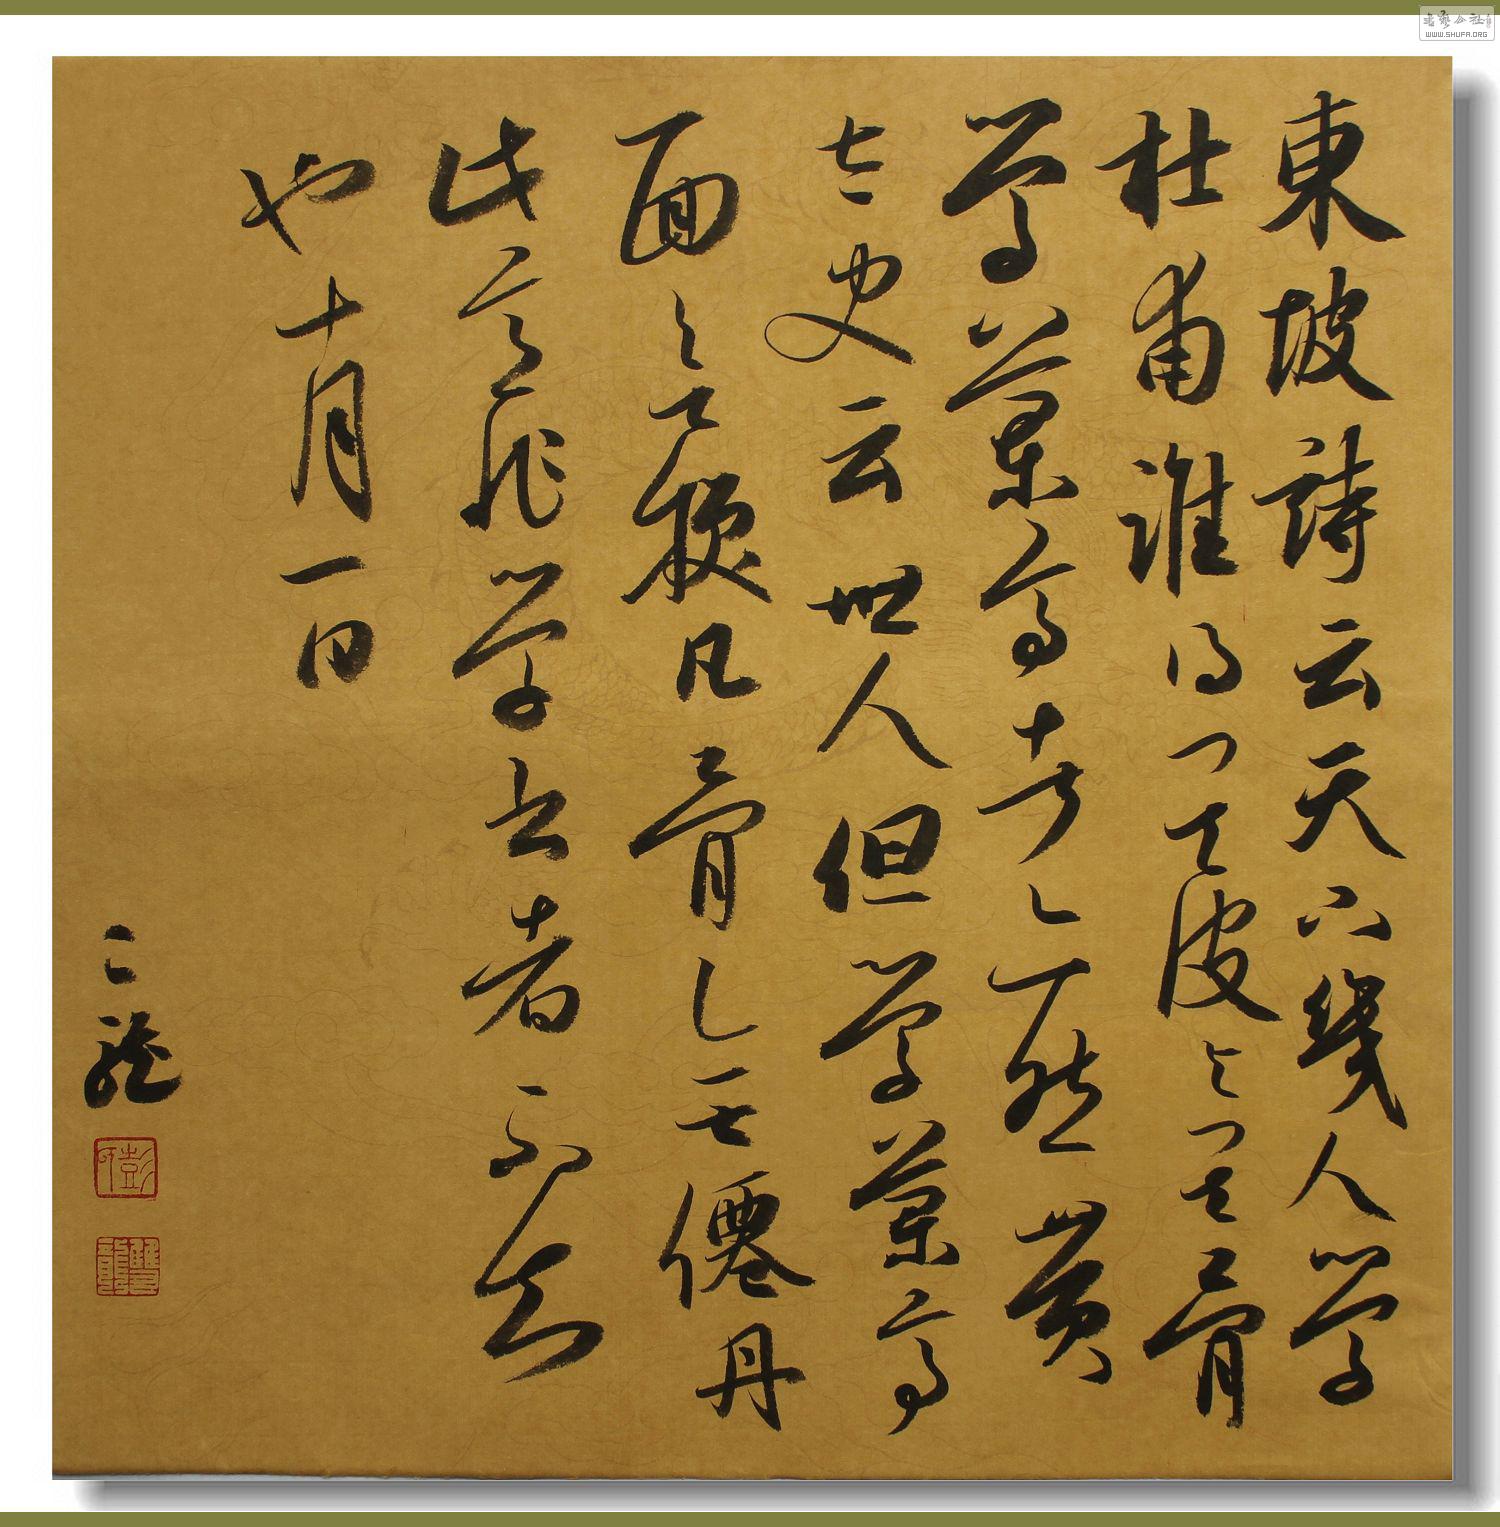 书艺公社
WWW.SHUFA.ORG
東坡詩云天下幾人學
杜甫誰得其皮與其骨
學蘭亭者亦然黃
太史云世人但學蘭亭
面欲換凡骨無僊丹
此意非學書者不知
也十月一日
雙龍
彭
雙龍